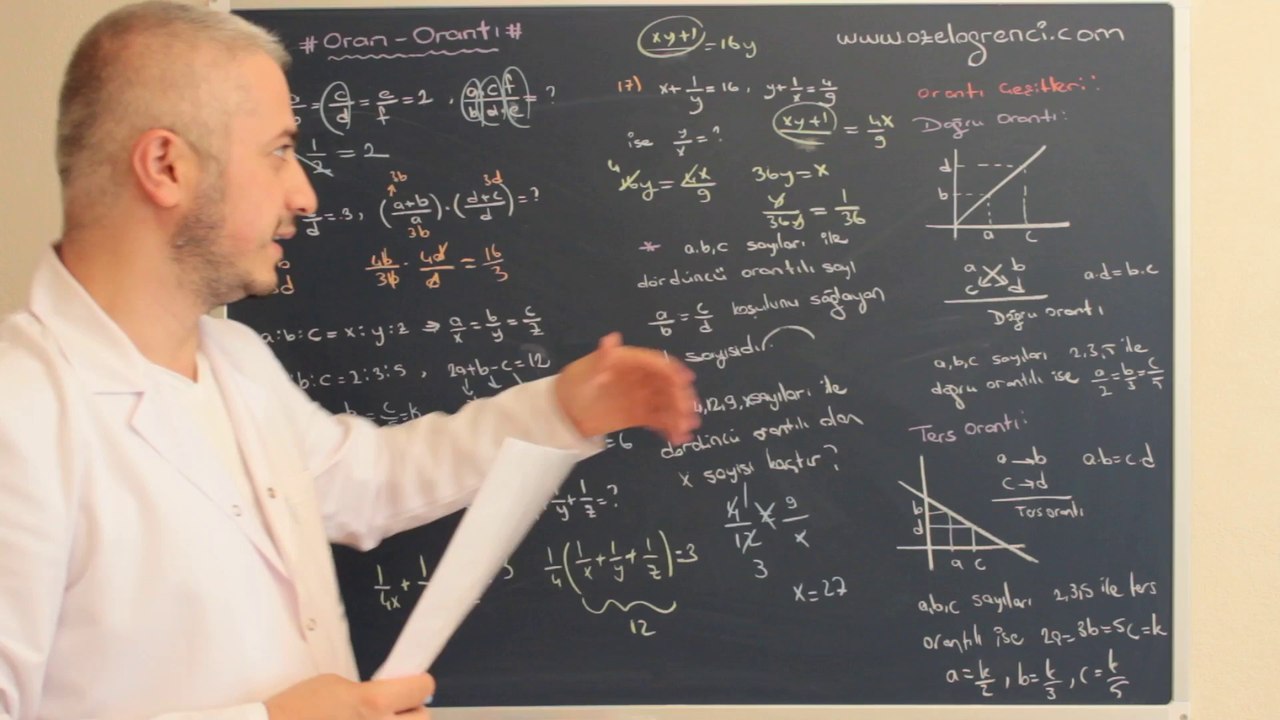 #Oran-Orantı#
= c/d = e/f = 2 , a.c.f/b.d.e = ?
1/2 = 2
= 3, (a+b/a).(d+c/d) = ?
3b 3d
3b
4b/3b . 4d/d = 16/3
a:b:c = x:y:z ⇒ a/x = b/y = c/z
b:c = 2:3:5 , 2a+b-c=12
= c/ = k
= 6
1/y + 1/z = ?
1/4x + 1/4(1/x + 1/y + 1/z) = 3
12
xy+1 = 16y
17) x+1/y = 16, y+1/x = 4/9
ise y/x = ?
xy+1 = 4x/9
4
16y = 4x/9 36y = x
y/36y = 1/36
* a,b,c sayıları ile
dördüncü orantılı sayı
a/b = c/d koşulunu sağlayan
sayısıdır.
4,12,9,x sayıları ile
dördüncü orantılı olan
x sayısı kaçtır?
4/12 9/x
1
3
x=27
www.ozelogrenci.com
orantı Çeşitleri:
Doğru orantı:
d
b
a c
a b
c d
a.d=b.c
Doğru orantı
a,b,c sayıları 2,3,5 ile
doğru orantılı ise a/2 = b/3 = c/5
Ters Orantı:
a → b
c → d
a.b=c.d
Ters orantı
b
d
a c
a,b,c sayıları 2,3,5 ile ters
orantılı ise 2a=3b=5c=k
a=k/2, b=k/3, c=k/5